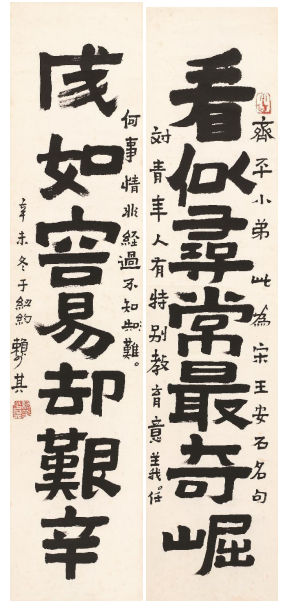 齊平小弟此為宋王安石名句
看似尋常最奇崛
対青年人有特别教育意義。任
何事情非経過不知難。
成如容易却艱辛
辛未冬于紐約賴少其